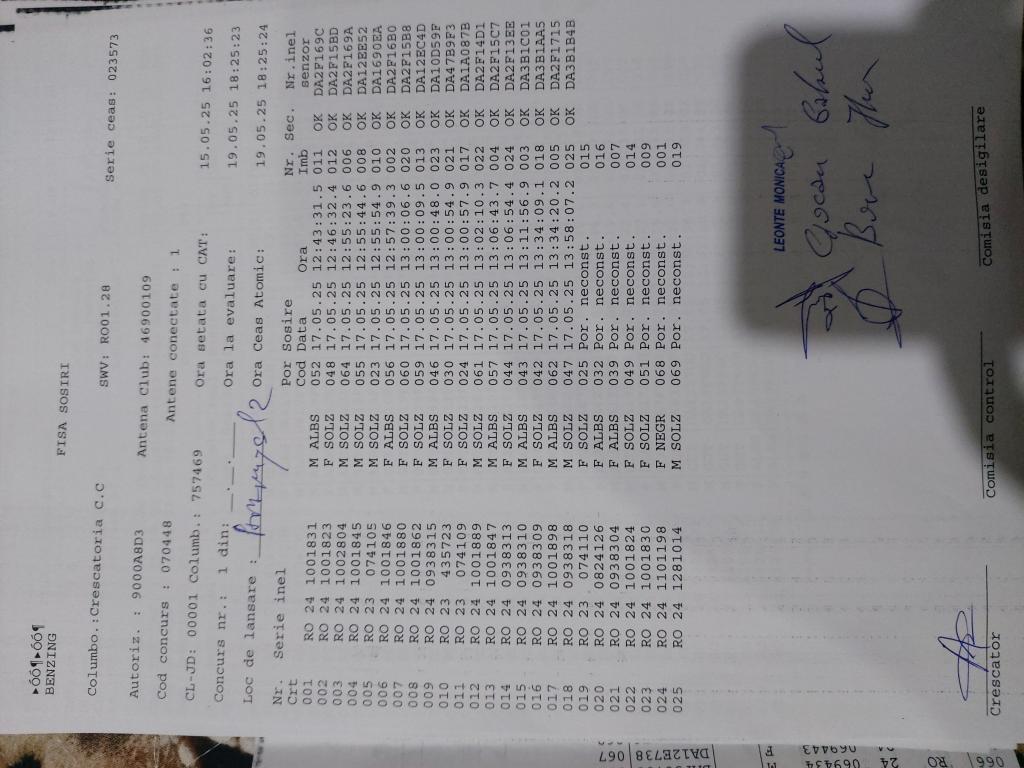 ►óó¶►óó¶
BENZING
FISA SOSIRI
Columbo.:Crescatoria C.C SWV: RO01.28 Serie ceas: 023573
Autoriz. : 9000A8D3 Antena Club: 46900109
Cod concurs : 070448 Antene conectate : 1
CL-JD: 00001 Columb.: 757469 Ora setata cu CAT: 15.05.25 16:02:36
Concurs nr.: 1 din: __.__.____ Ora la evaluare: 19.05.25 18:25:23
Loc de lansare : Ora Ceas Atomic: 19.05.25 18:25:24
Nr. Serie inel Por Sosire Nr. Sec. Nr.inel
Crt Cod Data Ora Imb senzor
001 RO 24 1001831 M ALBS 052 17.05.25 12:43:31.5 011 OK DA2F169C
002 RO 24 1001823 F SOLZ 048 17.05.25 12:46:32.4 012 OK DA2F15BD
003 RO 24 1002804 M SOLZ 064 17.05.25 12:55:23.6 006 OK DA2F169A
004 RO 24 1001845 M SOLZ 055 17.05.25 12:55:44.6 008 OK DA12EE52
005 RO 23 074105 M SOLZ 023 17.05.25 12:55:54.9 010 OK DA1690EA
006 RO 24 1001846 F ALBS 056 17.05.25 12:57:39.3 002 OK DA2F16B0
007 RO 24 1001880 F SOLZ 060 17.05.25 13:00:06.6 020 OK DA2F15B8
008 RO 24 1001862 F SOLZ 059 17.05.25 13:00:09.5 013 OK DA12EC4D
009 RO 24 0938315 M ALBS 046 17.05.25 13:00:48.0 023 OK DA10D59F
010 RO 23 435723 F SOLZ 030 17.05.25 13:00:54.9 021 OK DA47B9F3
011 RO 23 074109 F SOLZ 024 17.05.25 13:00:57.9 017 OK DA1A087B
012 RO 24 1001889 M SOLZ 061 17.05.25 13:02:10.3 022 OK DA2F14D1
013 RO 24 1001847 M ALBS 057 17.05.25 13:06:43.7 004 OK DA2F15C7
014 RO 24 0938313 F SOLZ 044 17.05.25 13:06:54.4 024 OK DA2F13EE
015 RO 24 0938310 M ALBS 043 17.05.25 13:11:56.9 003 OK DA3B1C01
016 RO 24 0938309 F SOLZ 042 17.05.25 13:34:09.1 018 OK DA3B1AA5
017 RO 24 1001898 M ALBS 062 17.05.25 13:34:20.2 005 OK DA2F1715
018 RO 24 0938318 M SOLZ 047 17.05.25 13:58:07.2 025 OK DA3B1B4B
019 RO 23 074110 F SOLZ 025 Por. neconst. 015
020 RO 24 0824126 F ALBS 032 Por. neconst. 016
021 RO 24 0938304 F ALBS 039 Por. neconst. 007
022 RO 24 1001824 F SOLZ 049 Por. neconst. 014
023 RO 24 1001830 F SOLZ 051 Por. neconst. 009
024 RO 24 1101198 F NEGR 068 Por. neconst. 001
025 RO 24 1281014 M SOLZ 069 Por. neconst. 019
LEONTE MONICA
Crescator Comisia control Comisia desigilare
066 RO 24 069434 M DA12E738 067
069443 F